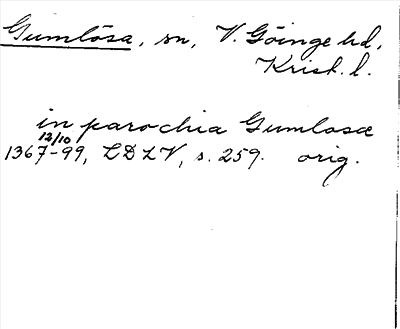 Gumlösa, sn, V. Göinge hd,
Krist. l.
in parochia Gumlosæ
12/10
1367-99, LDLV, s. 259. orig.